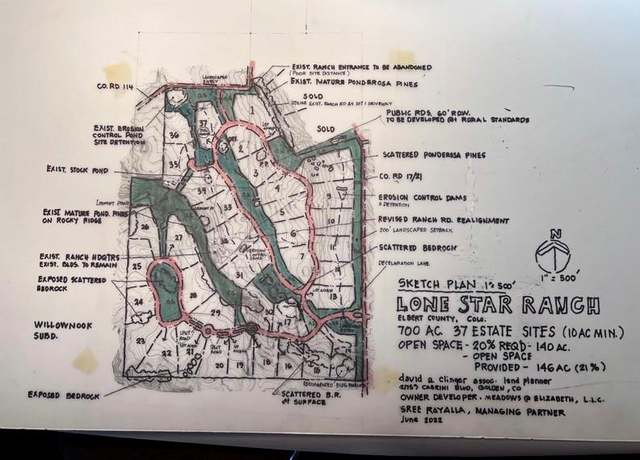 EXIST. RANCH ENTRANCE TO BE ABANDONED
(POOR SITE DISTANCE)
EXIST. MATURE PONDEROSA PINES
LANDSCAPED
ENTRY
CO. RD 114
SOLD
PUBLIC RDS. 60' ROW.
TO BE DEVELOPED @ RURAL STANDARDS
SOLD
EXIST. EROSION
CONTROL POND
SITE DETENTION
SCATTERED PONDEROSA PINES
EXIST. STOCK POND
CO. RD 17/21
EROSION CONTROL DAMS
& DETENTION
EXIST MATURE POND. PINES
ON ROCKY RIDGE
REVISED RANCH RD. REALIGNMENT
200' LANDSCAPED SETBACK
SCATTERED BEDROCK
EXIST. RANCH HDQTRS
EXIST. BLDS. TO REMAIN
DECELERATION LANE
EXPOSED SCATTERED
BEDROCK
N
1" = 500'
SKETCH PLAN 1"= 500'
LONE STAR RANCH
ELBERT COUNTY, COLO.
700 AC. 37 ESTATE SITES (10 AC MIN.)
OPEN SPACE - 20% REQ'D - 140 AC.
- OPEN SPACE
PROVIDED - 146 AC (21%)
WILLOWNOOK
SUBD.
david a clinger assoc. land planner
CABRINI BLVD, GOLDEN, CO
OWNER DEVELOPER. MEADOWS @ ELIZABETH, L.L.C.
SREE ROYALLA, MANAGING PARTNER
June 2022
EXPOSED BEDROCK
SCATTERED B.R.
AT SURFACE
1
2
3
4
5
6
7
8
9
10
11
12
13
15
16
17
18
19
20
21
22
23
24
25
26
27
28
29
30
31
32
33
34
35
36
37